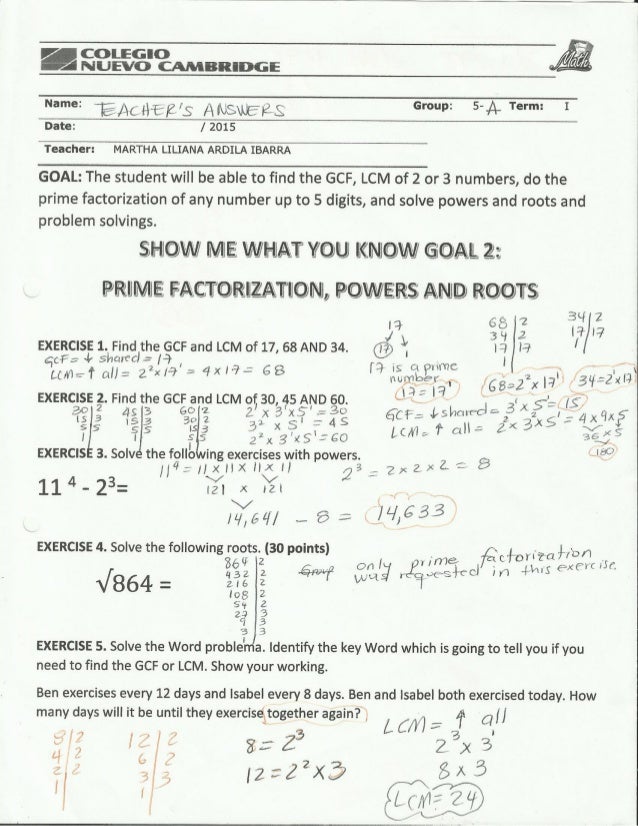 COLEGIO
NUEVO CAMBRIDGE
Math
Name: TEACHER'S ANSWERS Group: 5-A Term: I
Date: / 2015
Teacher: MARTHA LILIANA ARDILA IBARRA
GOAL: The student will be able to find the GCF, LCM of 2 or 3 numbers, do the
prime factorization of any number up to 5 digits, and solve powers and roots and
problem solvings.
SHOW ME WHAT YOU KNOW GOAL 2:
PRIME FACTORIZATION, POWERS AND ROOTS
17 68|2 34|2
17 1 34|2 17|17
17|17 1
1
EXERCISE 1. Find the GCF and LCM of 17, 68 AND 34.
GCF= ↓ shared = 17
LCM=↑ all= 2²x17¹ = 4x17= 68
17 is a prime
number
17=17¹
68=2²x17¹
34=2¹x17¹
EXERCISE 2. Find the GCF and LCM of 30, 45 AND 60.
30|2 45|3 60|2 2¹x3¹x5¹=30
15|3 15|3 30|2 3²x5¹=45
5|5 5|5 15|3 2²x3¹x5¹=60
1 1 5|5
1
GCF= ↓shared= 3¹x5¹=15
LCM= ↑ all= 2²x3²x5¹=4x9x5
36x5
180
EXERCISE 3. Solve the following exercises with powers.
11⁴ = 11x11x11x11 2³ = 2x2x2 = 8
11 ⁴ - 2³=
121 x 121
14,641 - 8 = 14,633
EXERCISE 4. Solve the following roots. (30 points)
√864 =
864|2
432|2
216|2
108|2
54|2
27|3
9|3
3|3
1
only prime factorization
was requested in this exercise.
EXERCISE 5. Solve the Word problema. Identify the key Word which is going to tell you if you
need to find the GCF or LCM. Show your working.
Ben exercises every 12 days and Isabel every 8 days. Ben and Isabel both exercised today. How
many days will it be until they exercise together again?
8|2 12|2
4|2 6|2
2|2 3|3
1 1
8=2³
12=2²x3
LCM= ↑ all
2³x3¹
8x3
LCM=24